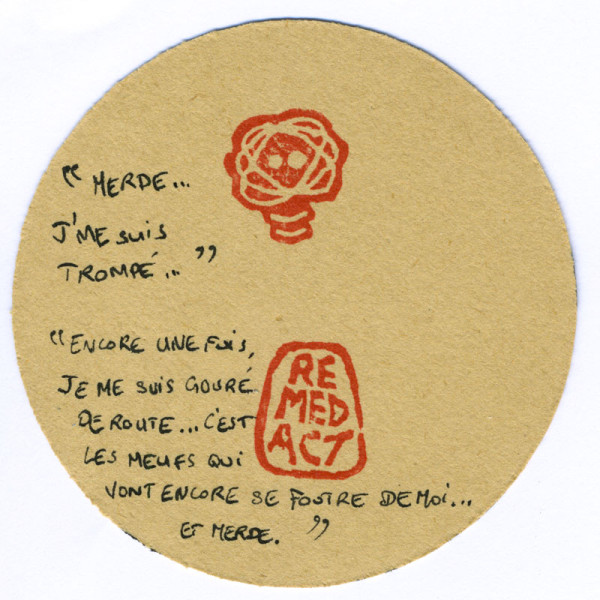 “ MERDE...
J'ME SUIS
TROMPÉ... ”
“ ENCORE UNE FOIS,
JE ME SUIS GOURÉ
DE ROUTE... C'EST
LES MEUFS QUI
VONT ENCORE SE FOUTRE DE MOI...
ET MERDE. ”
RE
MED
ACT